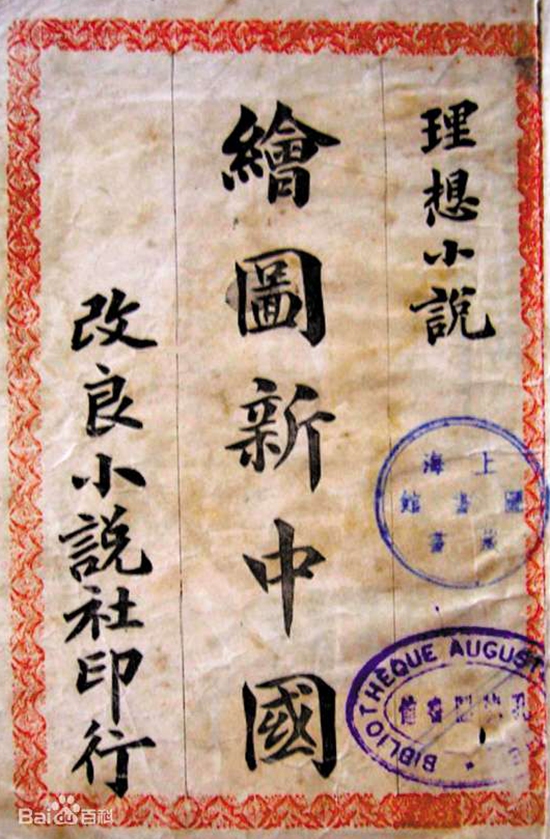 理想小說
繪圖新中國
改良小說社印行
上海
圖書館
藏書
BIBLIOTHEQUE AUGUST
Bai百科